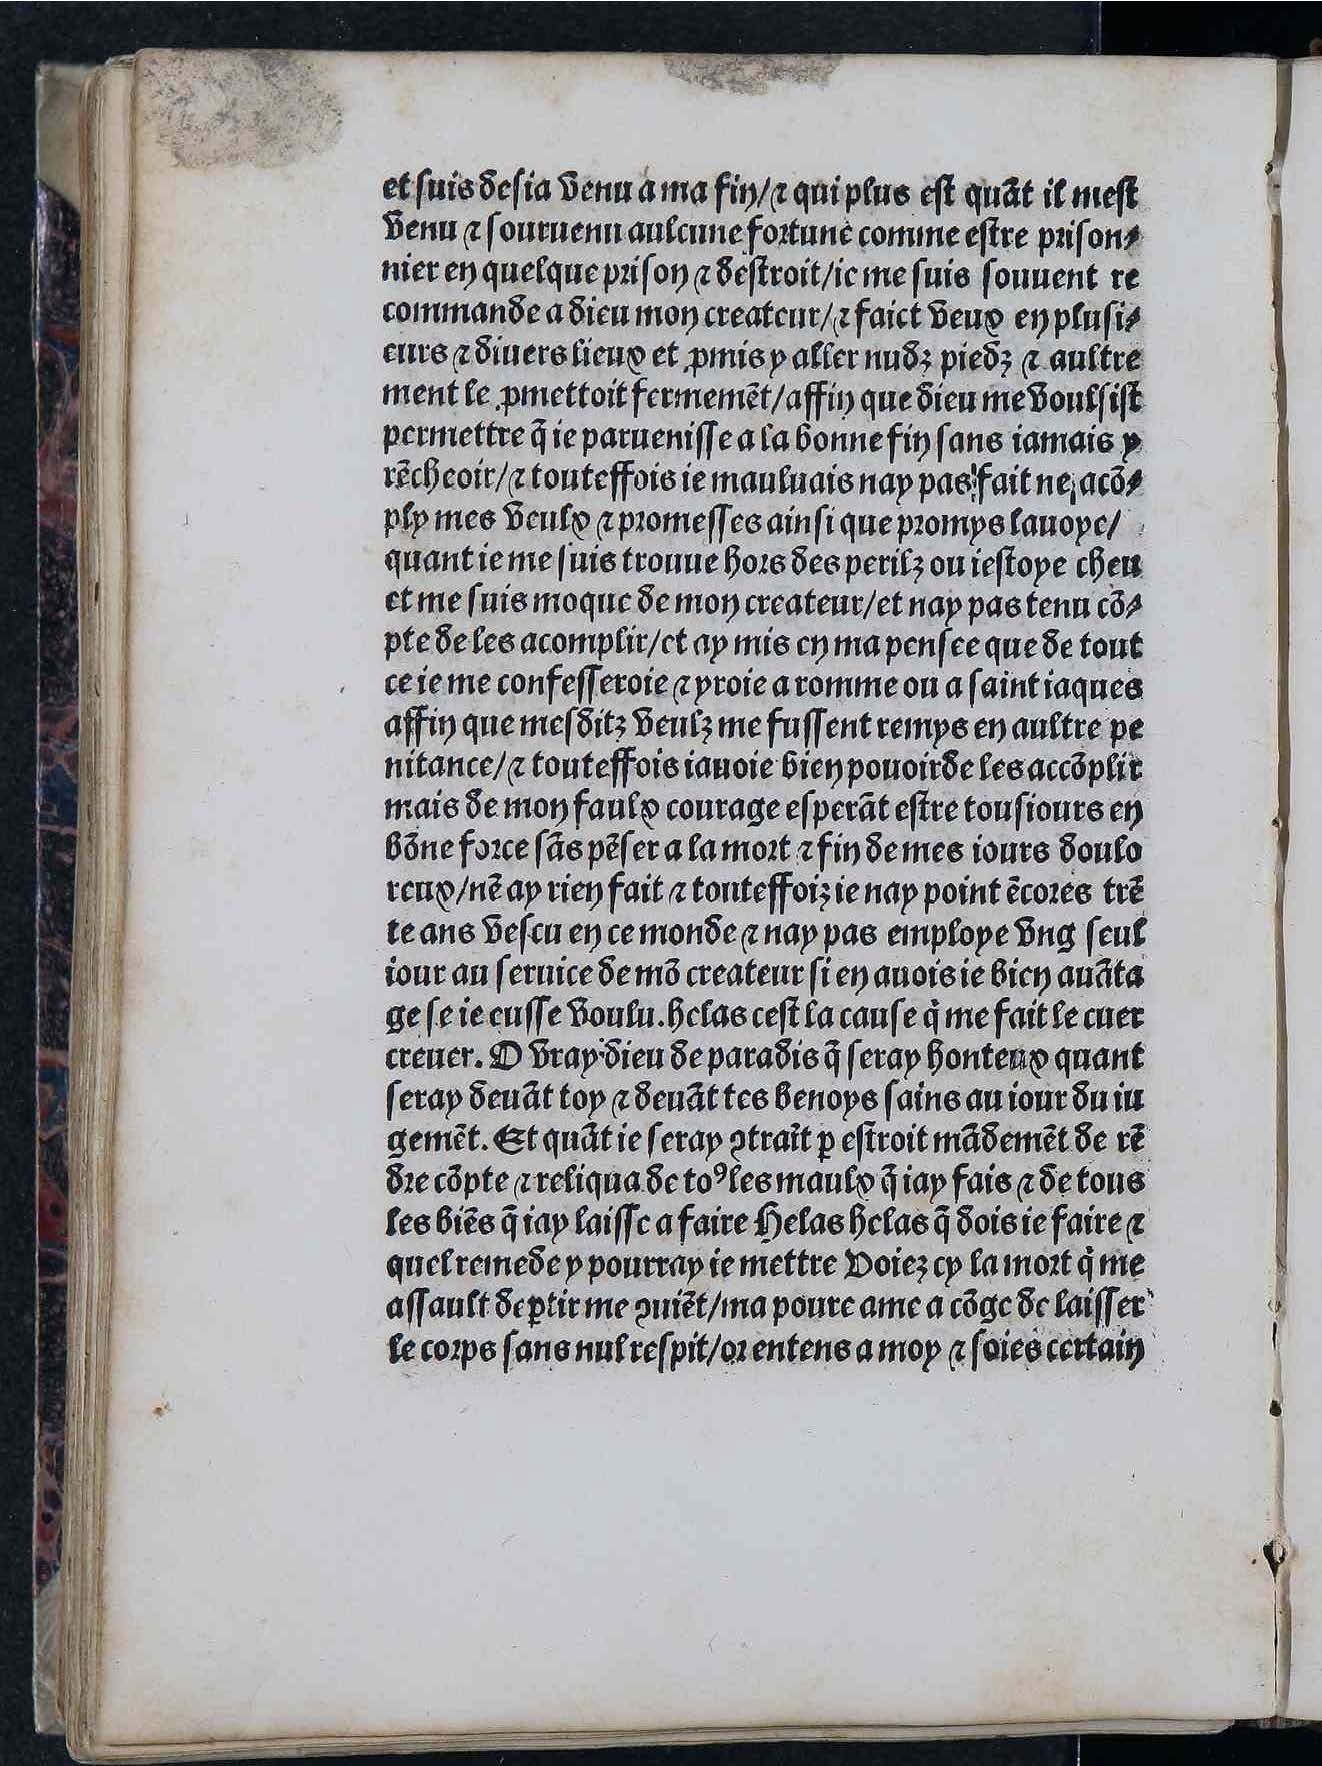 et suis desia venu a ma fin/⁊ qui plus est quãt il mest
venu ⁊ souruenu aulcune fortune comme estre prison⸗
nier en quelque prison ⁊ destroit/ie me suis souuent re
commande a dieu mon createur/⁊ faict veux en plusi⸗
eurs ⁊ diuers lieux et ꝓmis y aller nudz piedz ⁊ aultre
ment le ꝓmettoit fermemẽt/affin que dieu me voulsist
permettre q̃ ie paruenisse a la bonne fin sans iamais y
rẽcheoir/⁊ touteffois ie mauluais nay pas fait ne acõ⸗
ply mes veulx ⁊ promesses ainsi que promys lauoye/
quant ie me suis trouue hors des perilz ou iestoye cheu
et me suis moque de mon createur/et nay pas tenu cõ⸗
pte de les acomplir/et ay mis en ma pensee que de tout
ce ie me confesseroie ⁊ yroie a romme ou a saint iaques
affin que mesditz veulz me fussent remys en aultre pe
nitance/⁊ touteffois iauoie bien pouoir de les accõplir
mais de mon faulx courage esperãt estre tousiours en
bõne force sãs pẽser a la mort ⁊ fin de mes iours doulo
reux/nẽ ay rien fait ⁊ touteffoiz ie nay point ẽcores trẽ
te ans vescu en ce monde ⁊ nay pas employe vng seul
iour au seruice de mõ createur si en auois ie bien auãta
ge se ie eusse voulu. helas cest la cause q̃ me fait le cuer
creuer. O vray dieu de paradis q̃ seray honteux quant
seray deuãt toy ⁊ deuãt tes benoys sains au iour du iu
gemẽt. Et quãt ie seray ꝯtraĩt ꝑ estroit mãdemẽt de rẽ
dre cõpte ⁊ reliqua de toꝰ les maulx q̃ iay fais ⁊ de tous
les biẽs q̃ iay laisse a faire Helas helas q̃ dois ie faire ⁊
quel remede y pourray ie mettre Voiez cy la mort q̃ me
assault de ꝑtir me ꝯuiẽt/ma poure ame a cõge de laisser
le corps sans nul respit/or entens a moy ⁊ soies certain